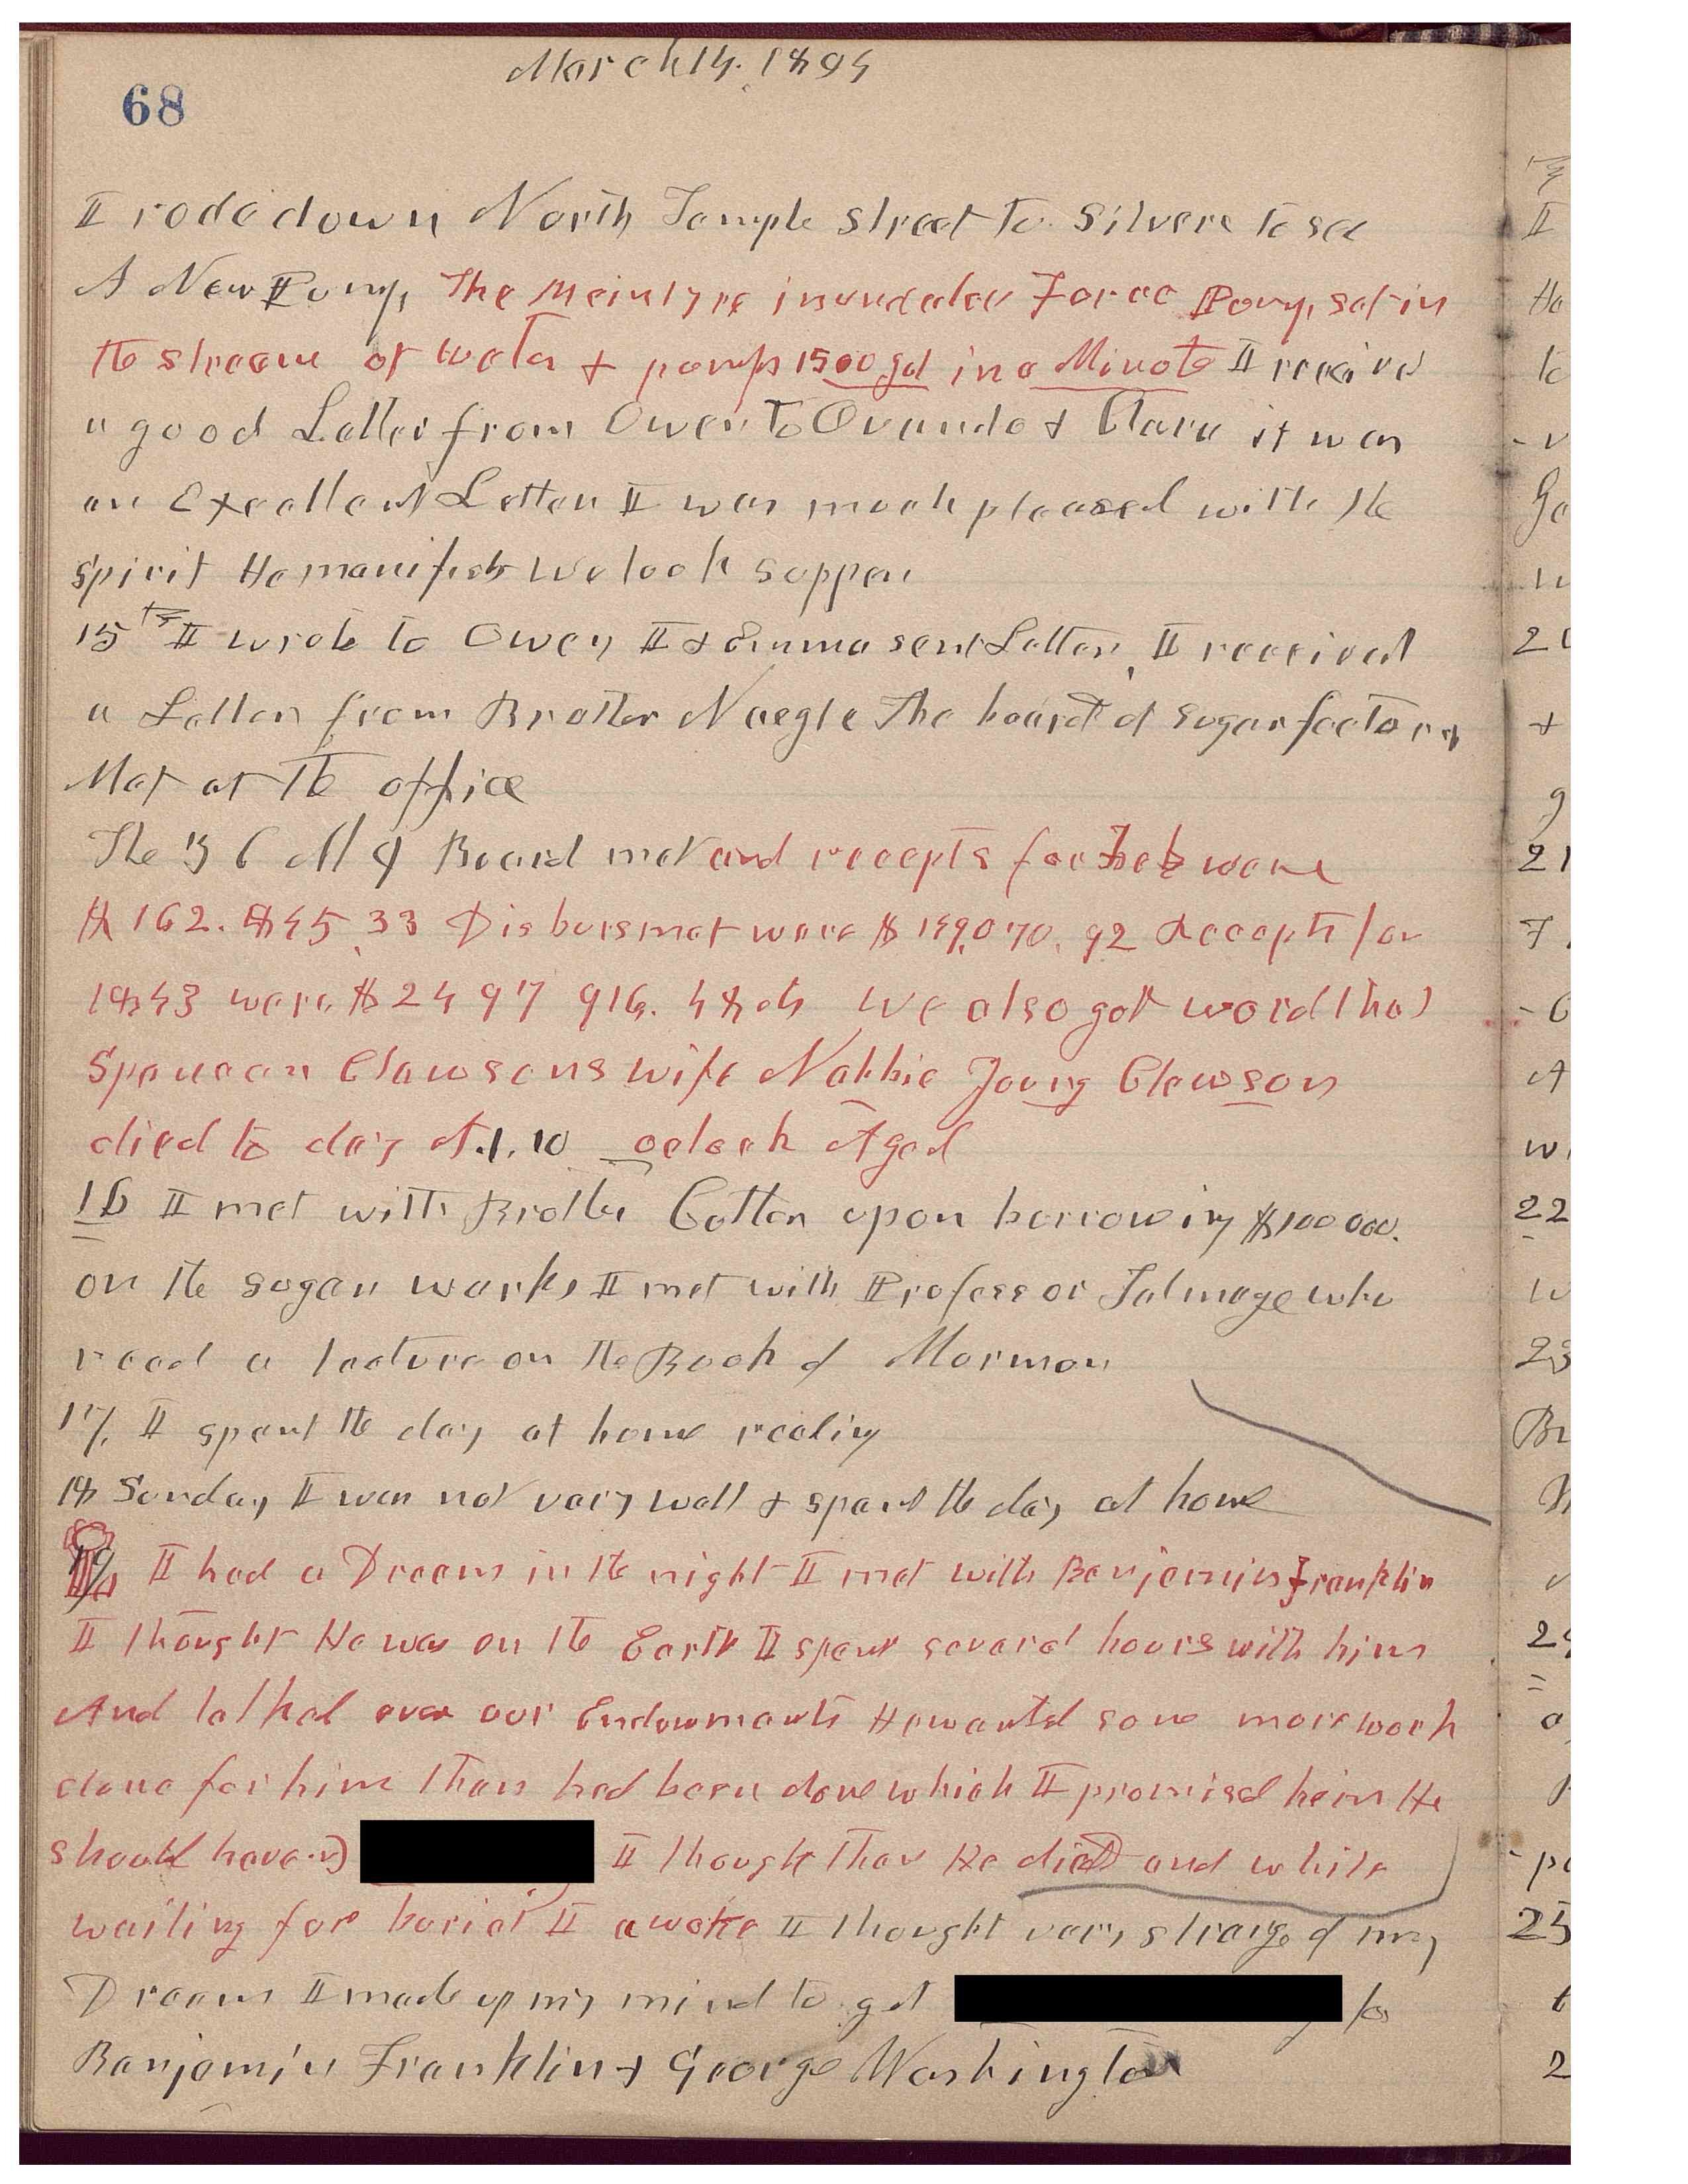 March 14. 1894
68
I rode down North Temple Street to Silvers to see
A New Pump, The McIntyre Force Pump, set in
the stream of water & pumps 1500 gal in a Minute I receivd
a good Letter from Owen to Ovando & Clara it was
an Excellent Letter I was much pleased with the
spirit He manifests we took supper
15th I wrote to Owen I & Emma sent Letter, I received
a Letter from Brother Naegle The board of Sugar factory
Met at the office
The Z C M I Board met and recepts for Feb were
$162.845.33 Disbursmet were $149,070.92 Recepts for
1843 were $2497 916. 48 cts We also got word that
Spencer Clawsons wife Nabbie Young Clawson
died to day At 1.10 oclock Aged
16 I met with Brother Cutler upon borrowing $100000.
on the sugar works I met with Professor Talmage who
read a lecture on the Book of Mormon
17, I spent the day at home reading
18 Sunday I was not very well & spent the day at home
19 I had a Dream in the night I met with Benjamin Franklin
I thought He was on the Earth I spent several hours with him
And talked over our Endowments He wanted some more work
done for him than had been done which I promised him He
should have I thought than He died and while
waiting for burial I awoke I thought very strange of my
Dream I made up my mind to get for
Benjamin Franklin & George Washington